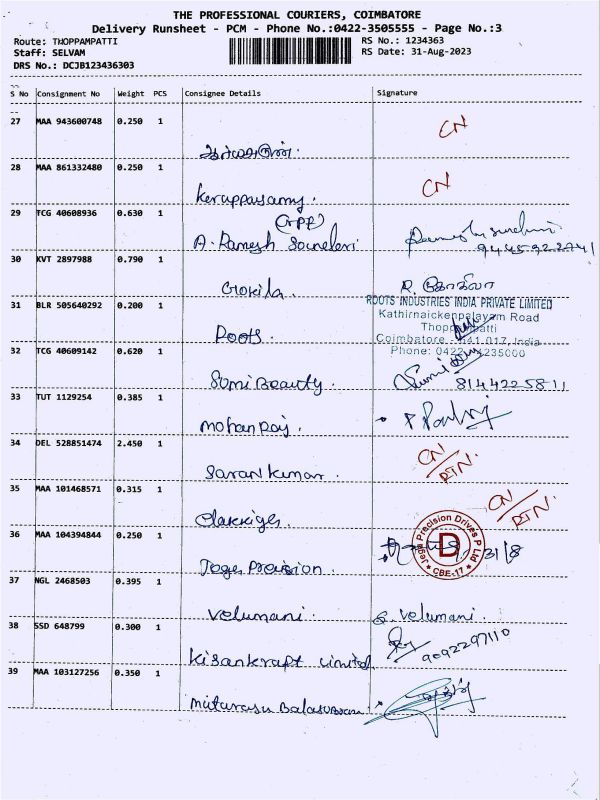 THE PROFESSIONAL COURIERS, COIMBATORE
Delivery Runsheet - PCM - Phone No.:0422-3505555 - Page No.:3
Route: THOPPAMPATTI
Staff: SELVAM
DRS No.: DCJB123436303
RS No.: 1234363
RS Date: 31-Aug-2023
S No Consignment No Weight PCS Consignee Details Signature
27 MAA 943600748 0.250 1 CN
28 MAA 861332480 0.250 1 Keruppasamy. CN
29 TCG 40608936 0.630 1 A. Ramesh
30 KVT 2897988 0.790 1 Gokila. R. கோகிலா
31 BLR 505640292 0.200 1 Roots.
ROOTS INDUSTRIES INDIA PRIVATE LIMITED
Kathirnaickenpalayam Road
Thoppampatti
Coimbatore - 641 017, India
Phone: 0422 4235000
32 TCG 40609142 0.620 1 Sumi Beauty. 8144225811
33 TUT 1129254 0.385 1 Mohan Raj.
34 DEL 528851474 2.450 1 Sarankumar. CN/RTN.
35 MAA 101468571 0.315 1 CN/RTN.
36 MAA 104394844 0.250 1 Jega Precision. 31/8
Jega Precision Drives P Ltd
D
CBE-17
37 NGL 2468503 0.395 1 Velumani. Velumani.
38 SSD 648799 0.300 1 Kisankraft Limited 9092297110
39 MAA 103127256 0.350 1